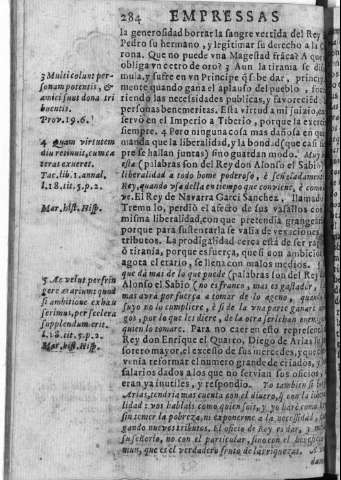 284 EMPRESSAS
la generosidad borrar la sangre vertida del Rey
Pedro su hermano, y legitimar su derecho a la
rona. Que no puede vna Magestad franca? A que
obliga vn cetro de oro? 3 Aun la tirania se di
mula, y sufre en vn Principe q̃ sabe dar, princip
mente quando gana el aplauso del pueblo, soco
riendo las necessidades publicas, y favoreciẽd
personas benemeritas. Esta virtud a mi juizio, co
servò en el Imperio a Tiberio, porque la exerc
siempre. 4 Pero ninguna cosa mas dañosa en qu
manda que la liberalidad, y la bondad (que casi si
pre se hallan juntas) sino guardan modo. Muy
esta (palabras son del Rey don Alonso el Sabio)
liberalidad a todo home poderoso, è señaladamen
Rey, quando vsa della en tiempo que conviene, è com
ve. El Rey de Navarra Garci Sanchez, llamado
Tremulo, perdiò el afecto de sus vasallos con
misma liberalidad, con que pretendia grangear
porque para sustentarla se valia de vexaciones,
tributos. La prodigalidad cerca està de ser rap
ò tirania, porque es fuerça, que si con ambicion
agota el erario, se llena con malos medios.
que dà mas de lo que puede (palabras son del Rey
Alonso el Sabio) no es franco, mas es gastador,
mas avra por fuerça a tomar de lo ageno, quando
suyo no lo cumpliere, è si de la vna parte ganare
gos, por lo que les diere, de la otra
quien lo tomare. Para no caer en esto represent
Rey don Enrique el Quarto, Diego de Arias su
sorero mayor, el excesso de sus mercedes, y que
venia reformar el numero grande de criados, y
salarios dados a los que no servian sus oficios
eran ya inutiles, y respondio. Yo tambien si
Arias, tendria mas cuenta con el dinero, q̃ con la liber
lidad: vos hablais como quien sois, y yo harè como
sin temer la pobreza, ni exponerme a la necessidad,
gando nuevos tributos. El oficio de Rey es dar, y
su señorio, no con el particular, sino con el
mun, que es el verdadero fruto de las riquezas. A
3 Multi colunt per-
sonam potentis, &
amici sunt dona tri
buentis.
Prov. 19. 6.
4 Quam virtutem
diu retinuit, cum ca
teras exueret.
Tac. lib. 1. annal.
l. 18. tit. 5. p. 2.
Mar. hist. Hisp.
5 Ac velut perfrin
gere ærarium quod
si ambitione exhau
serimus, per scelera
supplendum erit.
l. 18. tit. 5. p. 2.
Mar. hist. Hisp.